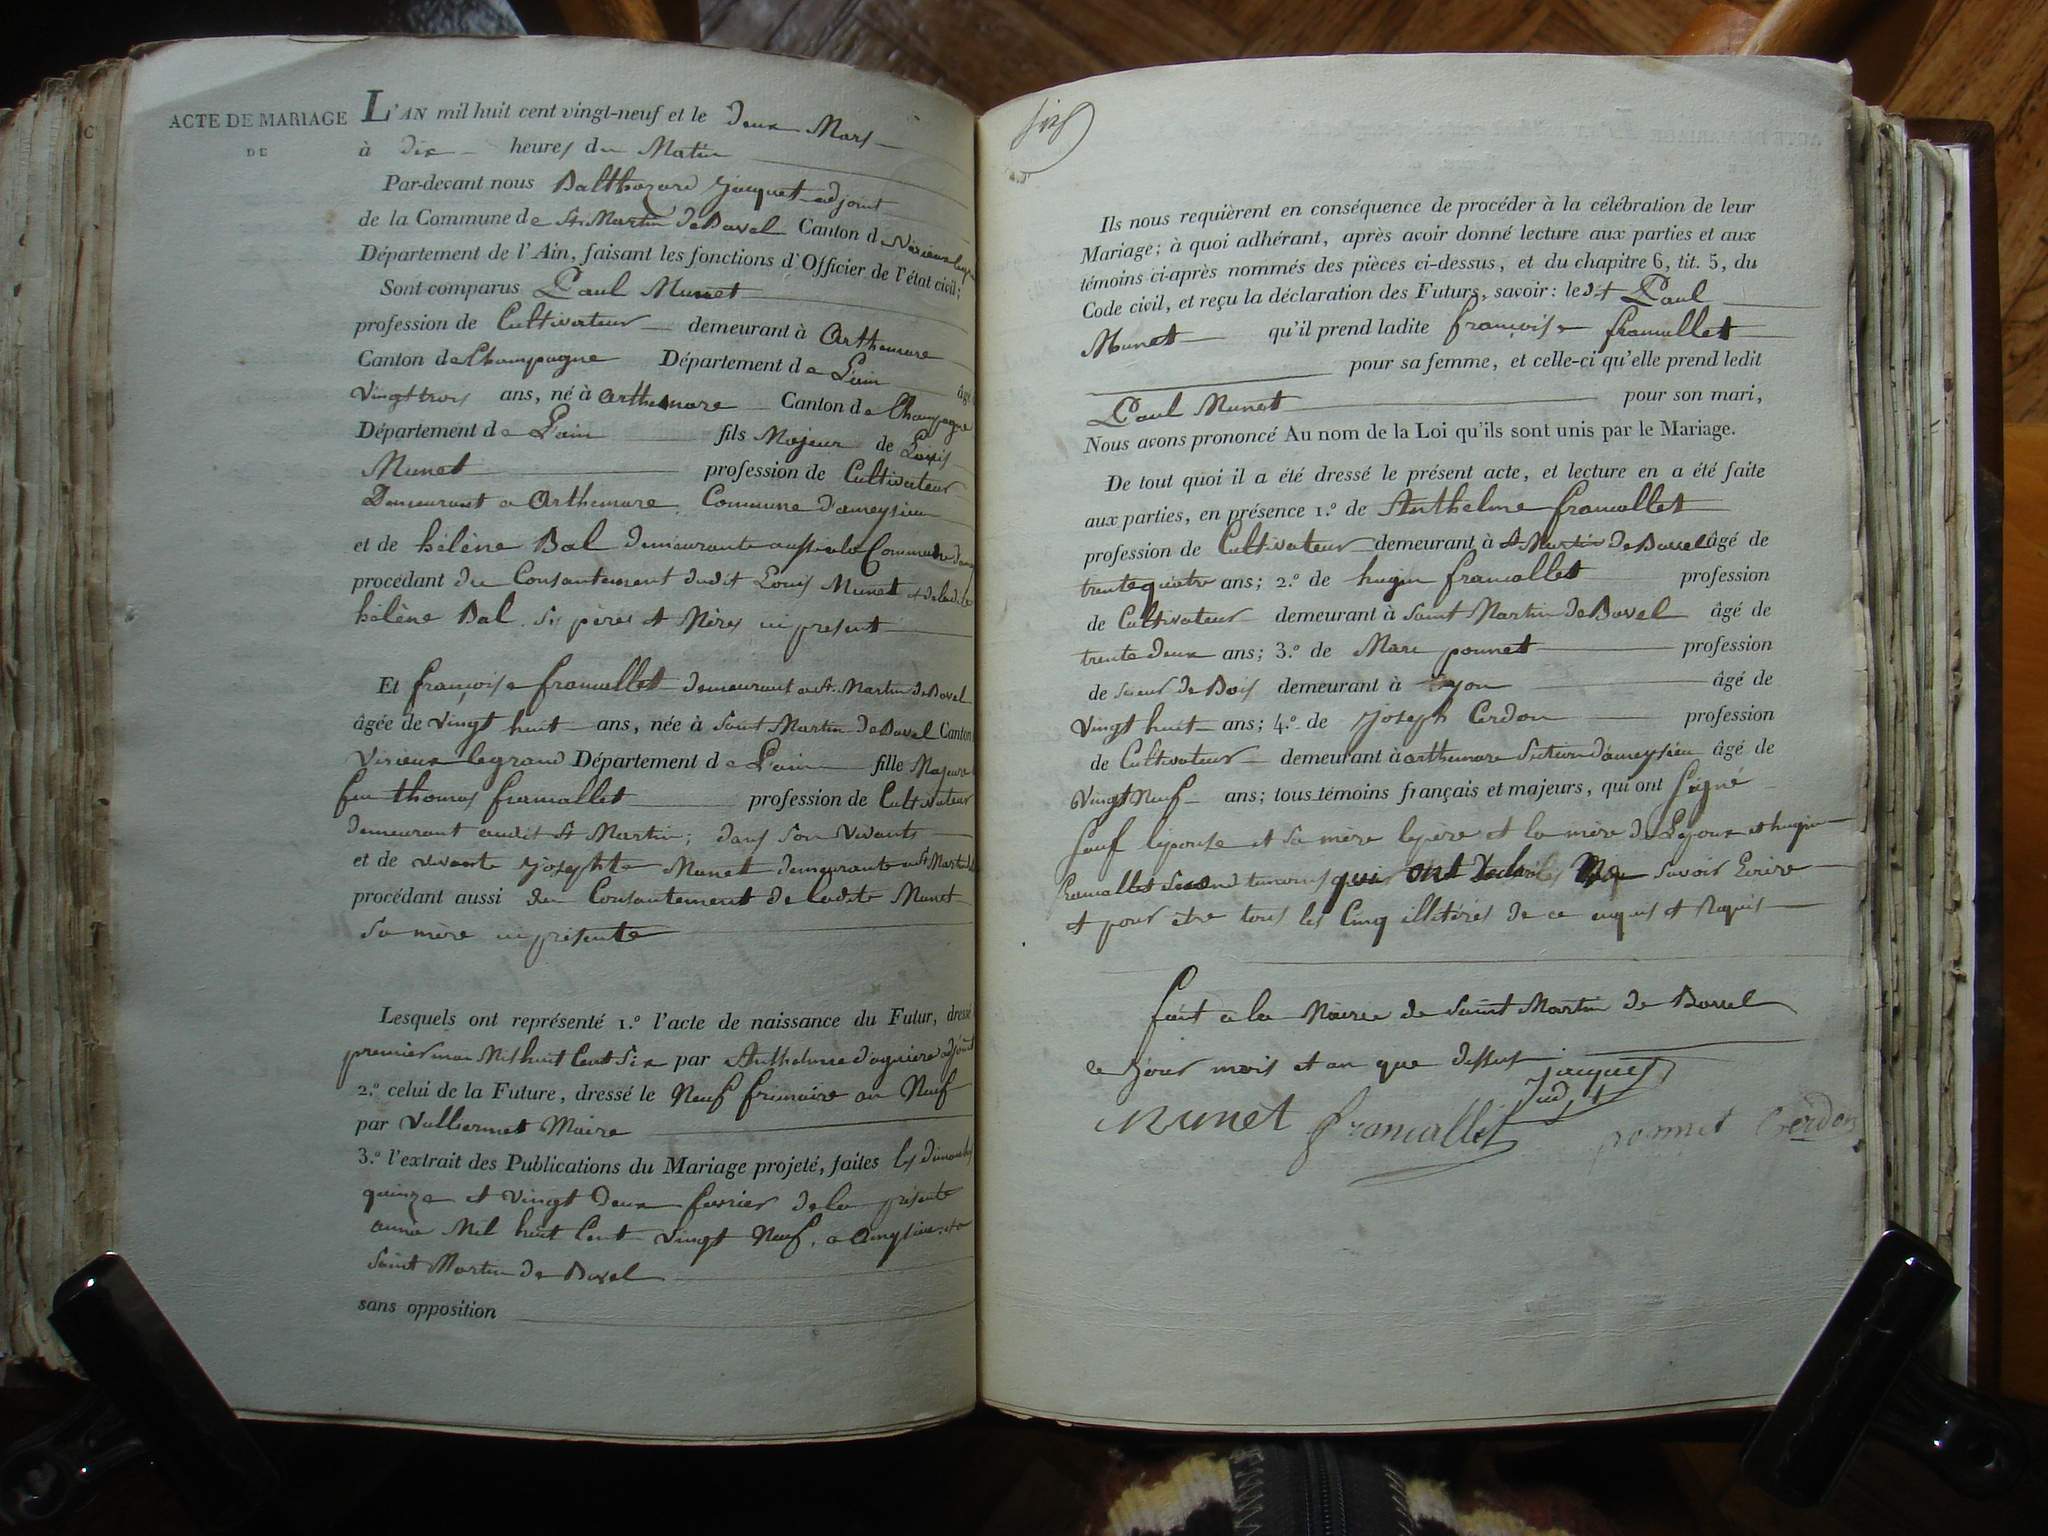 ACTE DE MARIAGE
DE
L'AN mil huit cent vingt-neuf et le deux Mars
à dix heures du Matin
Par-devant nous Balthazard Jacquet adjoint
de la Commune de St Martin de Bavel Canton de Virieux legrand
Département de l'Ain, faisant les fonctions d'Officier de l'état civil;
Sont comparus Paul Munet
profession de Cultivateur demeurant à Arthemare
Canton de Champagne Département de L'ain âgé
Vingt trois ans, né à arthemare Canton de Champagne
Département de L'ain fils Majeur de Louis
Munet profession de Cultivateur
Demeurant a Arthemare Commune d'ameysieu
et de hélène Bal demeurante aussi a la Commune
procédant du Consantement dudit Louis Munet et de ladite
hélène Bal ses pères et Mères ici present
Et françoise framallet demeurant a St Martin de Bavel
âgée de vingt huit ans, née à Saint Martin de Bavel Canton
Virieux legrand Département de L'ain fille Majeure
feu thomas framallet profession de Cultivateur
demeurant audit St Martin; dans son Vivants
et de vivante Josephte Munet demeurante au St Martin
procédant aussi du Consantement de ladite Munet
Sa mère ici présente
Lesquels ont représenté 1.º l'acte de naissance du Futur, dressé
premier mai Mil huit Cent Six par Anthelme d'aguiere adjoint
2.º celui de la Future, dressé le Neuf frimaire an Neuf
par Vulliermet Maire
3.º l'extrait des Publications du Mariage projeté, faites les dimanches
quinze et vingt deux fevrier de la présente
année Mil huit Cent Vingt Neuf, a Ameysieu et a
Saint Martin de Bavel
sans opposition
Ils nous requièrent en conséquence de procéder à la célébration de leur
Mariage; à quoi adhérant, après avoir donné lecture aux parties et aux
témoins ci-après nommés des pièces ci-dessus, et du chapitre 6, tit. 5, du
Code civil, et reçu la déclaration des Futurs, savoir: ledit Paul
Munet qu'il prend ladite françoise framallet
pour sa femme, et celle-ci qu'elle prend ledit
Paul Munet pour son mari,
Nous avons prononcé Au nom de la Loi qu'ils sont unis par le Mariage.
De tout quoi il a été dressé le présent acte, et lecture en a été faite
aux parties, en présence 1.º de Anthelme framallet
profession de Cultivateur demeurant à St Martin de Bavel âgé de
trente quatre ans; 2.º de hugin framallet profession
de Cultivateur demeurant à Saint Martin de Bavel âgé de
trente deux ans; 3.º de Marc ponnet profession
de Sieur de Bois demeurant à Lyon âgé de
Vingt huit ans; 4.º de Joseph Cerdon profession
de Cultivateur demeurant à arthemare Section d'ameysieu âgé de
Vingt Neuf ans; tous témoins français et majeurs, qui ont Signé
Sauf l'épouse et sa mère le père et la mère de L'epoux et hugin
framallet Second temoins qui ont déclarés Ne Savoir Ecrire
et pour être tous les Cinq illitérés de ce enquis et Requis
fait a la Mairie de Saint Martin de Bavel
le Jour mois et an que dessus Jacquet
adjt
Munet framallet ponnet Cerdon